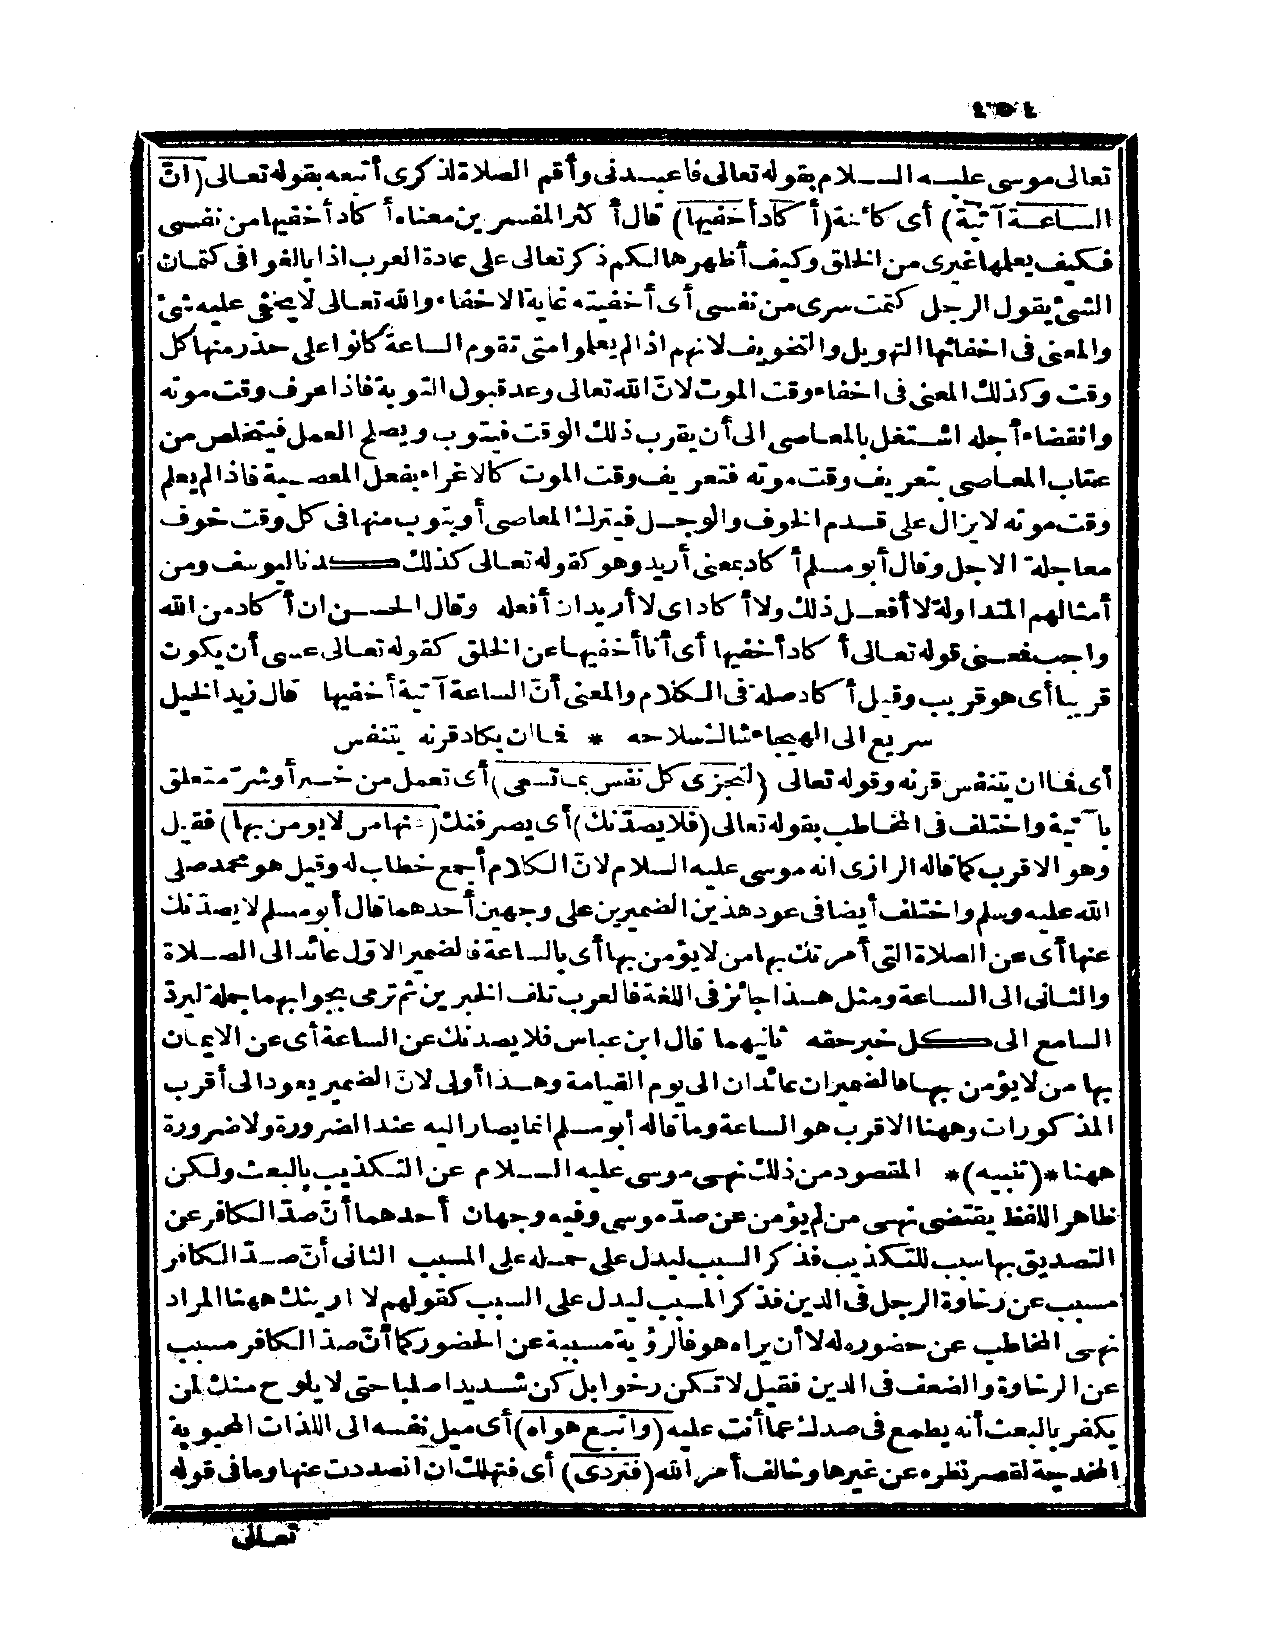 ٤٥٤
تعالى موسى عليه السلام بقوله تعالى فاعبدنى وأقم الصلاة لذكرى أتبعه بقوله تعالى (انّ
الساعة آتية) أى كائنة (أكاد أخفيها) قال أكثر المفسرين معناه أكاد أخفيها من نفسى
فكيف يعلمها غيرى من الخلق وكيف أظهرها لكم ذكر تعالى على عادة العرب اذا بالغوا فى كتمان
الشئ يقول الرجل كتمت سرى من نفسى أى أخفيته غاية الاخفاء والله تعالى لا يخفى عليه شئ
والمعنى فى اخفائها التهويل والتخويف لانهم اذا لم يعلموا متى تقوم الساعة كانوا على حذر منها كل
وقت وكذلك المعنى فى اخفاء وقت الموت لانّ الله تعالى وعد قبول التوبة فاذا عرف وقت موته
وانقضاء أجله اشتغل بالمعاصى الى أن يقرب ذلك الوقت فيتوب ويصلح العمل فيتخلص من
عقاب المعاصى بتعريف وقت موته فتعريف وقت الموت كالاغراء بفعل المعصية فاذا لم يعلم
وقت موته لا يزال على قدم الخوف والوجل فيترك المعاصى أو يتوب منها فى كل وقت خوف
معاجلة الاجل وقال أبو مسلم أكاد بمعنى أريد وهو كقوله تعالى كذلك كدنا ليوسف ومن
أمثالهم المتداولة لا أفعل ذلك ولا أكاد اى لا أريد ان أفعله وقال الحسن ان أكاد من الله
واجب فمعنى قوله تعالى أكاد أخفيها أى أنا أخفيها عن الخلق كقوله تعالى عسى أن يكون
قريبا أى هو قريب وقيل أكاد صلة فى الكلام والمعنى أنّ الساعة آتية أخفيها قال زيد الخيل
سريع الى الهيجاء شاك سلاحه * فما ان يكاد قرنه يتنفس
أى فما ان يتنفس قرنه وقوله تعالى (لتجزى كل نفس بما تسعى) أى تعمل من خير أو شرّ متعلق
بآتية واختلف فى المخاطب بقوله تعالى (فلا يصدّنك) أى يصرفنك (عنها من لا يومن بها) فقيل
وهو الاقرب كما قاله الرازى انه موسى عليه السلام لانّ الكلام أجمع خطاب له وقيل هو محمد صلى
الله عليه وسلم واختلف أيضا فى عود هذين الضميرين على وجهين أحدهما قال أبو مسلم لا يصدّنك
عنها أى عن الصلاة التى أمرتك بها من لا يؤمن بها أى بالساعة فالضمير الاوّل عائد الى الصلاة
والثانى الى الساعة ومثل هذا جائز فى اللغة فالعرب تلف الخبرين ثم ترمى بجوابهما جملة ليردّ
السامع الى كل خبر حقه ثانيهما قال ابن عباس فلا يصدنك عن الساعة أى عن الايمان
بها من لا يؤمن بها فالضميران عائدان الى يوم القيامة وهذا أولى لانّ الضمير يعود الى أقرب
المذكورات وههنا الاقرب هو الساعة وما قاله أبو مسلم انما يصار اليه عند الضرورة ولا ضرورة
ههنا *(تنبيه)* المقصود من ذلك نهى موسى عليه السلام عن التكذيب بالبعث ولكن
ظاهر اللفظ يقتضى نهى من لم يؤمن عن صدّ موسى وفيه وجهان أحدهما أنّ صدّ الكافر عن
التصديق بها سبب للتكذيب فذكر السبب ليدل على حمله على المسبب الثانى أنّ صدّ الكافر
مسبب عن رخاوة الرجل فى الدين فذكر المسبب ليدل على السبب كقولهم لا ارينك ههنا المراد
نهى المخاطب عن حضوره له لا أن يراه هو فالرؤية مسببة عن الحضور كما أنّ صدّ الكافر مسبب
عن الرخاوة والضعف فى الدين فقيل لا تكن رخوا بل كن شديدا صلبا حتى لا يلوح منك لمن
يكفر بالبعث أنه يطمع فى صدك عما أنت عليه (واتبع هواه) أى ميل نفسه الى اللذات المحبوبة
المخدجة لقصر نظره عن غيرها وخالف أمر الله (فتردى) أى فتهلك ان انصددت عنها وما فى قوله
تعالى